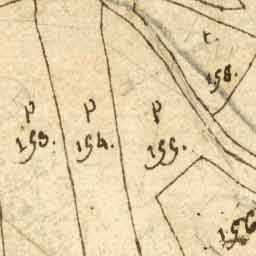 t.
158.
p
153.
p
154.
p
155.
156